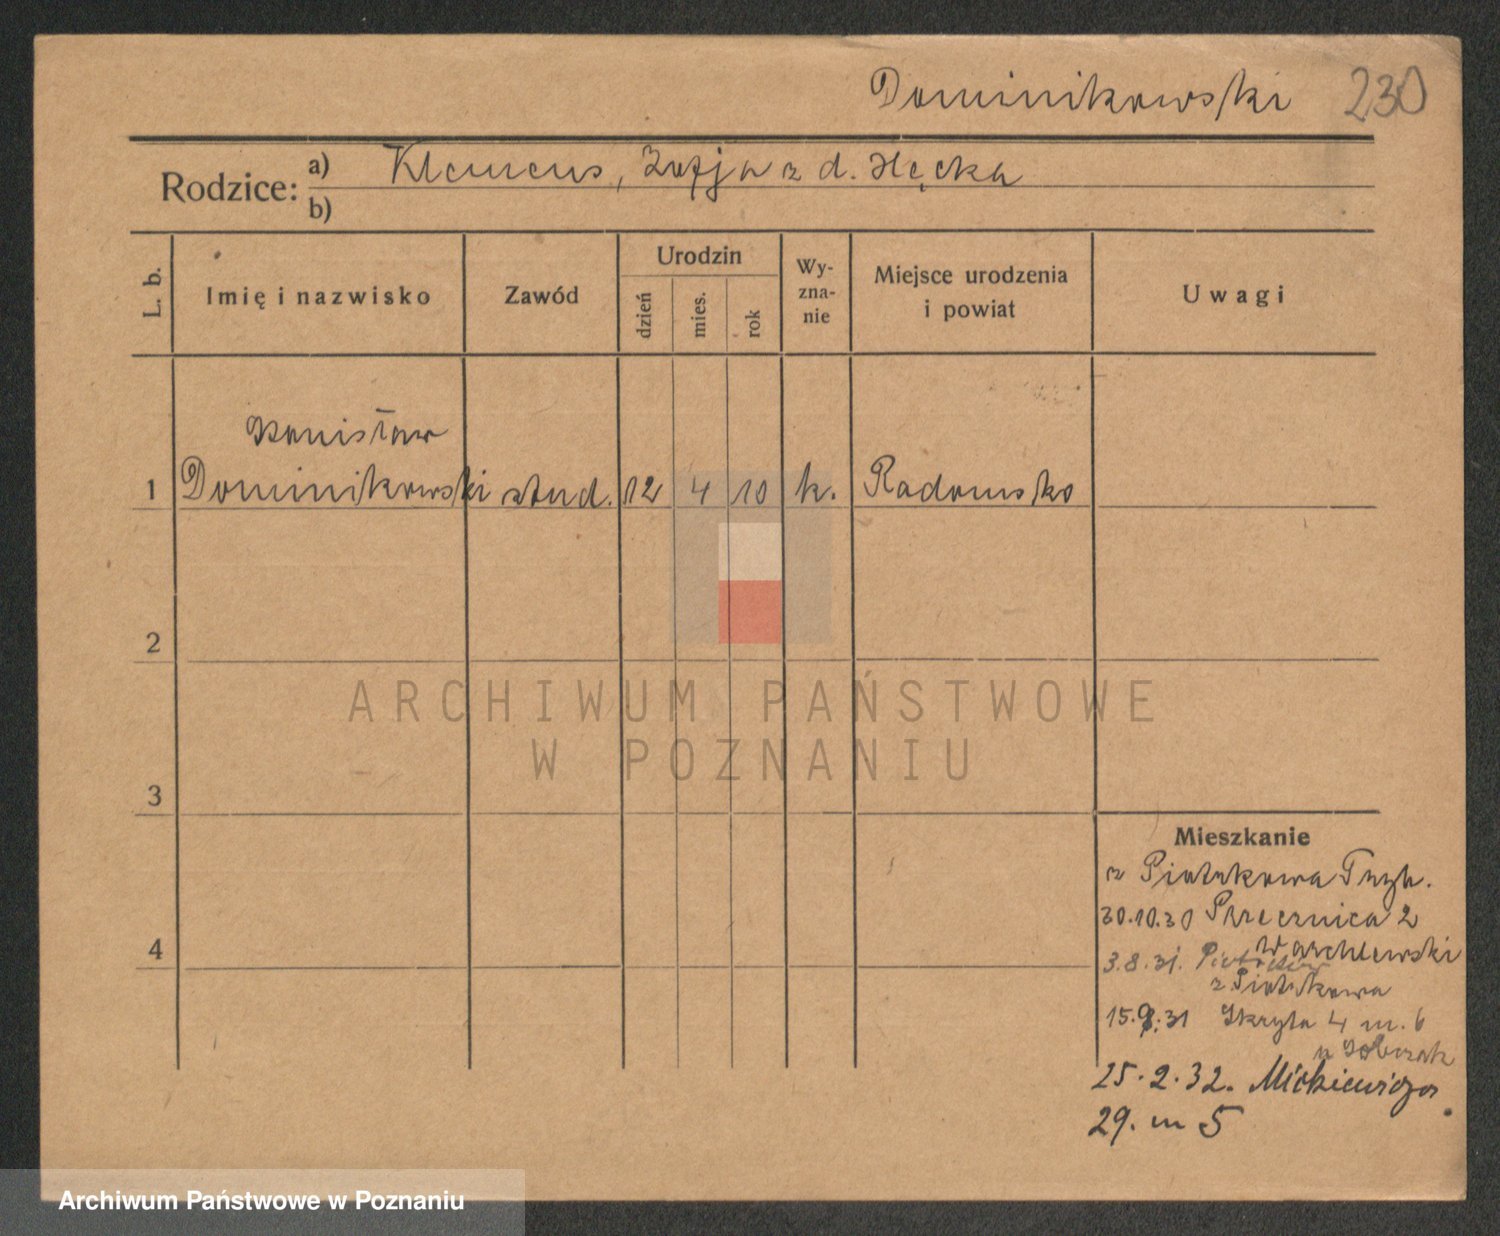 Dominikowski 230
Rodzice: a) Klemens, Zofja z d. Hęcka
b)
L. b. Imię i nazwisko Zawód Urodzin dzień mies. rok Wy-zna-nie Miejsce urodzenia i powiat Uwagi
Stanisław
1 Dominikowski stud. 12 4 10 k. Radomsko
2
ARCHIWUM PAŃSTWOWE
W POZNANIU
3
Mieszkanie
z Piotrkowa Tryb.
30.10.30 Strzecznica 2
4
3.8.31. Piotrków
z Piotrkowa
15.9.31 Skryta 4 m. 6
25.2.32. Mickiewicza
29. m 5
Archiwum Państwowe w Poznaniu